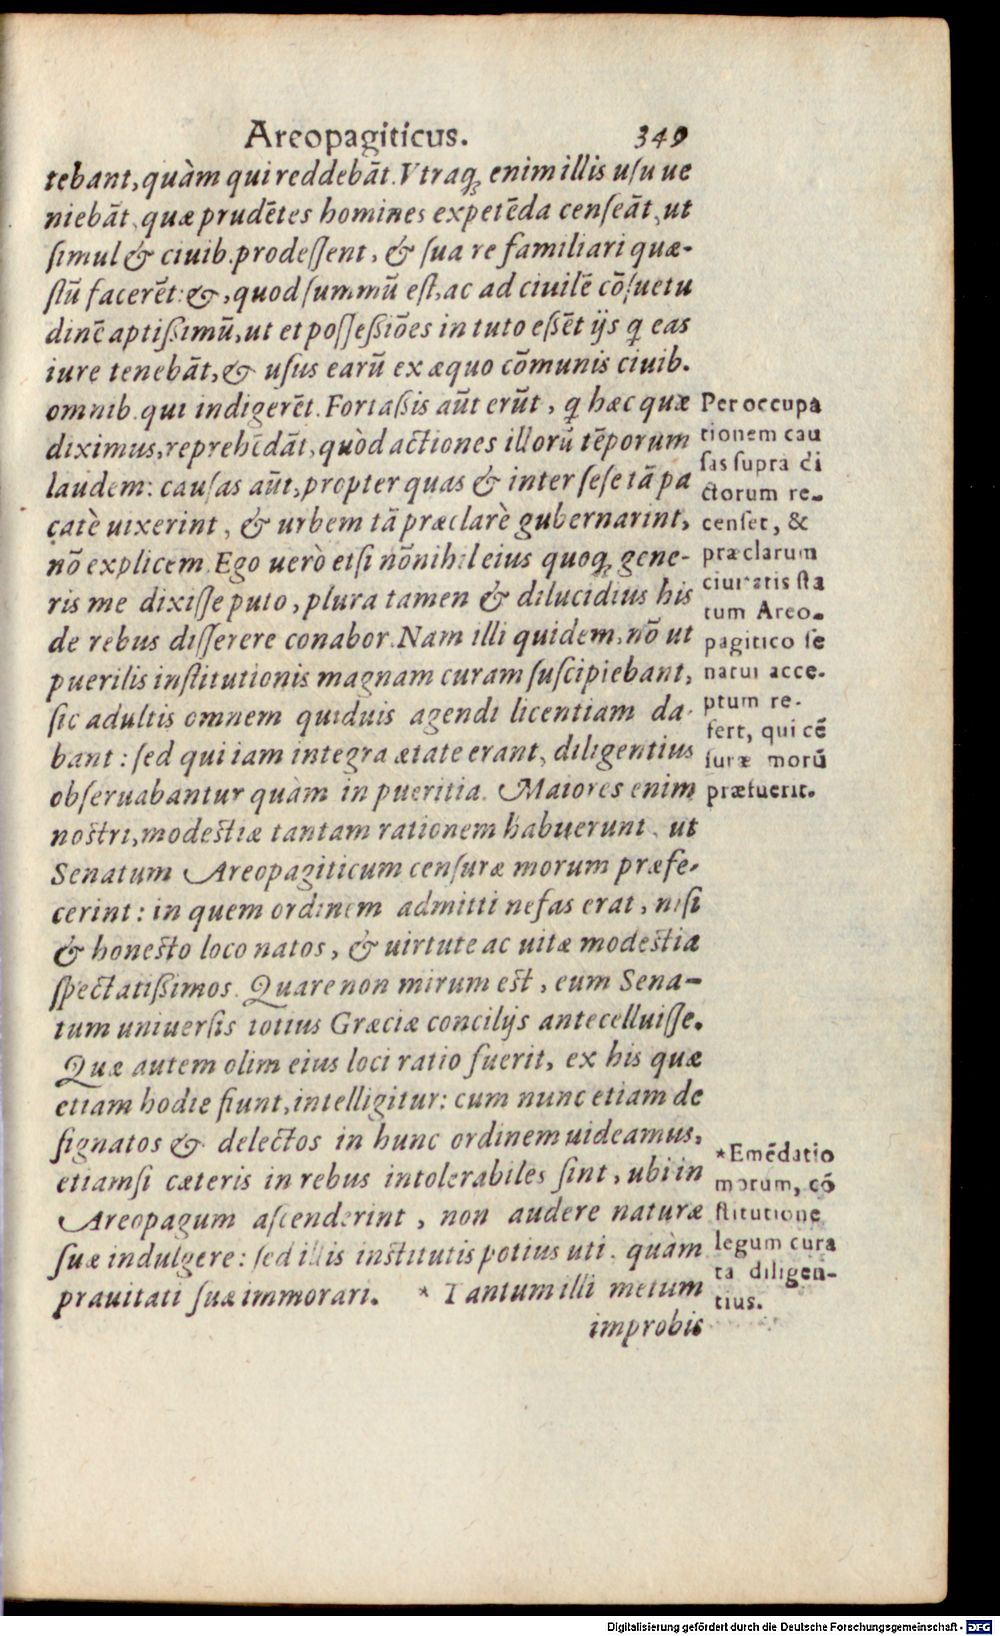 Areopagiticus. 349
tebant, quàm qui reddebāt. Vtraq́; enim illis uſu ue
niebāt, quæ prudētes homines expetēda cenſeāt, ut
ſimul & ciuib. prodeſſent, & ſua re familiari quæ-
ſtū facerēt: &, quod ſummū eſt, ac ad ciuilē cōſuetu
dinē aptißimū, ut et poſſeßiōes in tuto eßēt ijs q̃ eas
iure tenebāt, & uſus earū ex æquo cōmunis ciuib.
omnib. qui indigerēt. Fortaßis aūt erūt, q̃ hæc quæ
diximus, reprehēdāt, quòd actiones illorū tēporum
laudem: cauſas aūt, propter quas & inter ſeſe tā pa
catè uixerint, & urbem tā præclarè gubernarint,
nō explicem. Ego uerò etſi nōnihil eius quoq; gene-
ris me dixiſſe puto, plura tamen & dilucidius his
de rebus diſſerere conabor. Nam illi quidem, nō ut
puerilis inſtitutionis magnam curam ſuſcipiebant,
ſic adultis omnem quiduis agendi licentiam da-
bant: ſed qui iam integra ætate erant, diligentius
obſeruabantur quàm in pueritia. Maiores enim
noſtri, modeſtiæ tantam rationem habuerunt, ut
Senatum Areopagiticum cenſuræ morum præfe-
cerint: in quem ordinem admitti nefas erat, niſi
& honeſto loco natos, & uirtute ac uitæ modeſtia
ſpectatißimos. Quare non mirum eſt, eum Sena-
tum uniuerſis totius Græciæ concilijs antecelluiſſe.
Quæ autem olim eius loci ratio fuerit, ex his quæ
etiam hodie fiunt, intelligitur: cum nunc etiam de
ſignatos & delectos in hunc ordinem uideamus,
etiamſi cæteris in rebus intolerabiles ſint, ubi in
Areopagum aſcenderint, non audere naturæ
ſuæ indulgere: ſed illis inſtitutis potius uti, quàm
prauitati ſuæ immorari. * Tantum illi metum
improbis
Per occupa
tionem cau
ſas ſupra di
ctorum re-
cenſet, &
præclarum
ciuitatis ſta
tum Areo-
pagitico ſe
natui acce-
ptum re-
fert, qui cē
ſuræ morū
præfuerit.
*Emēdatio
morum, cō
ſtitutione
legum cura
ta diligen-
tius.
Digitalisierung gefördert durch die Deutsche Forschungsgemeinschaft - DFG